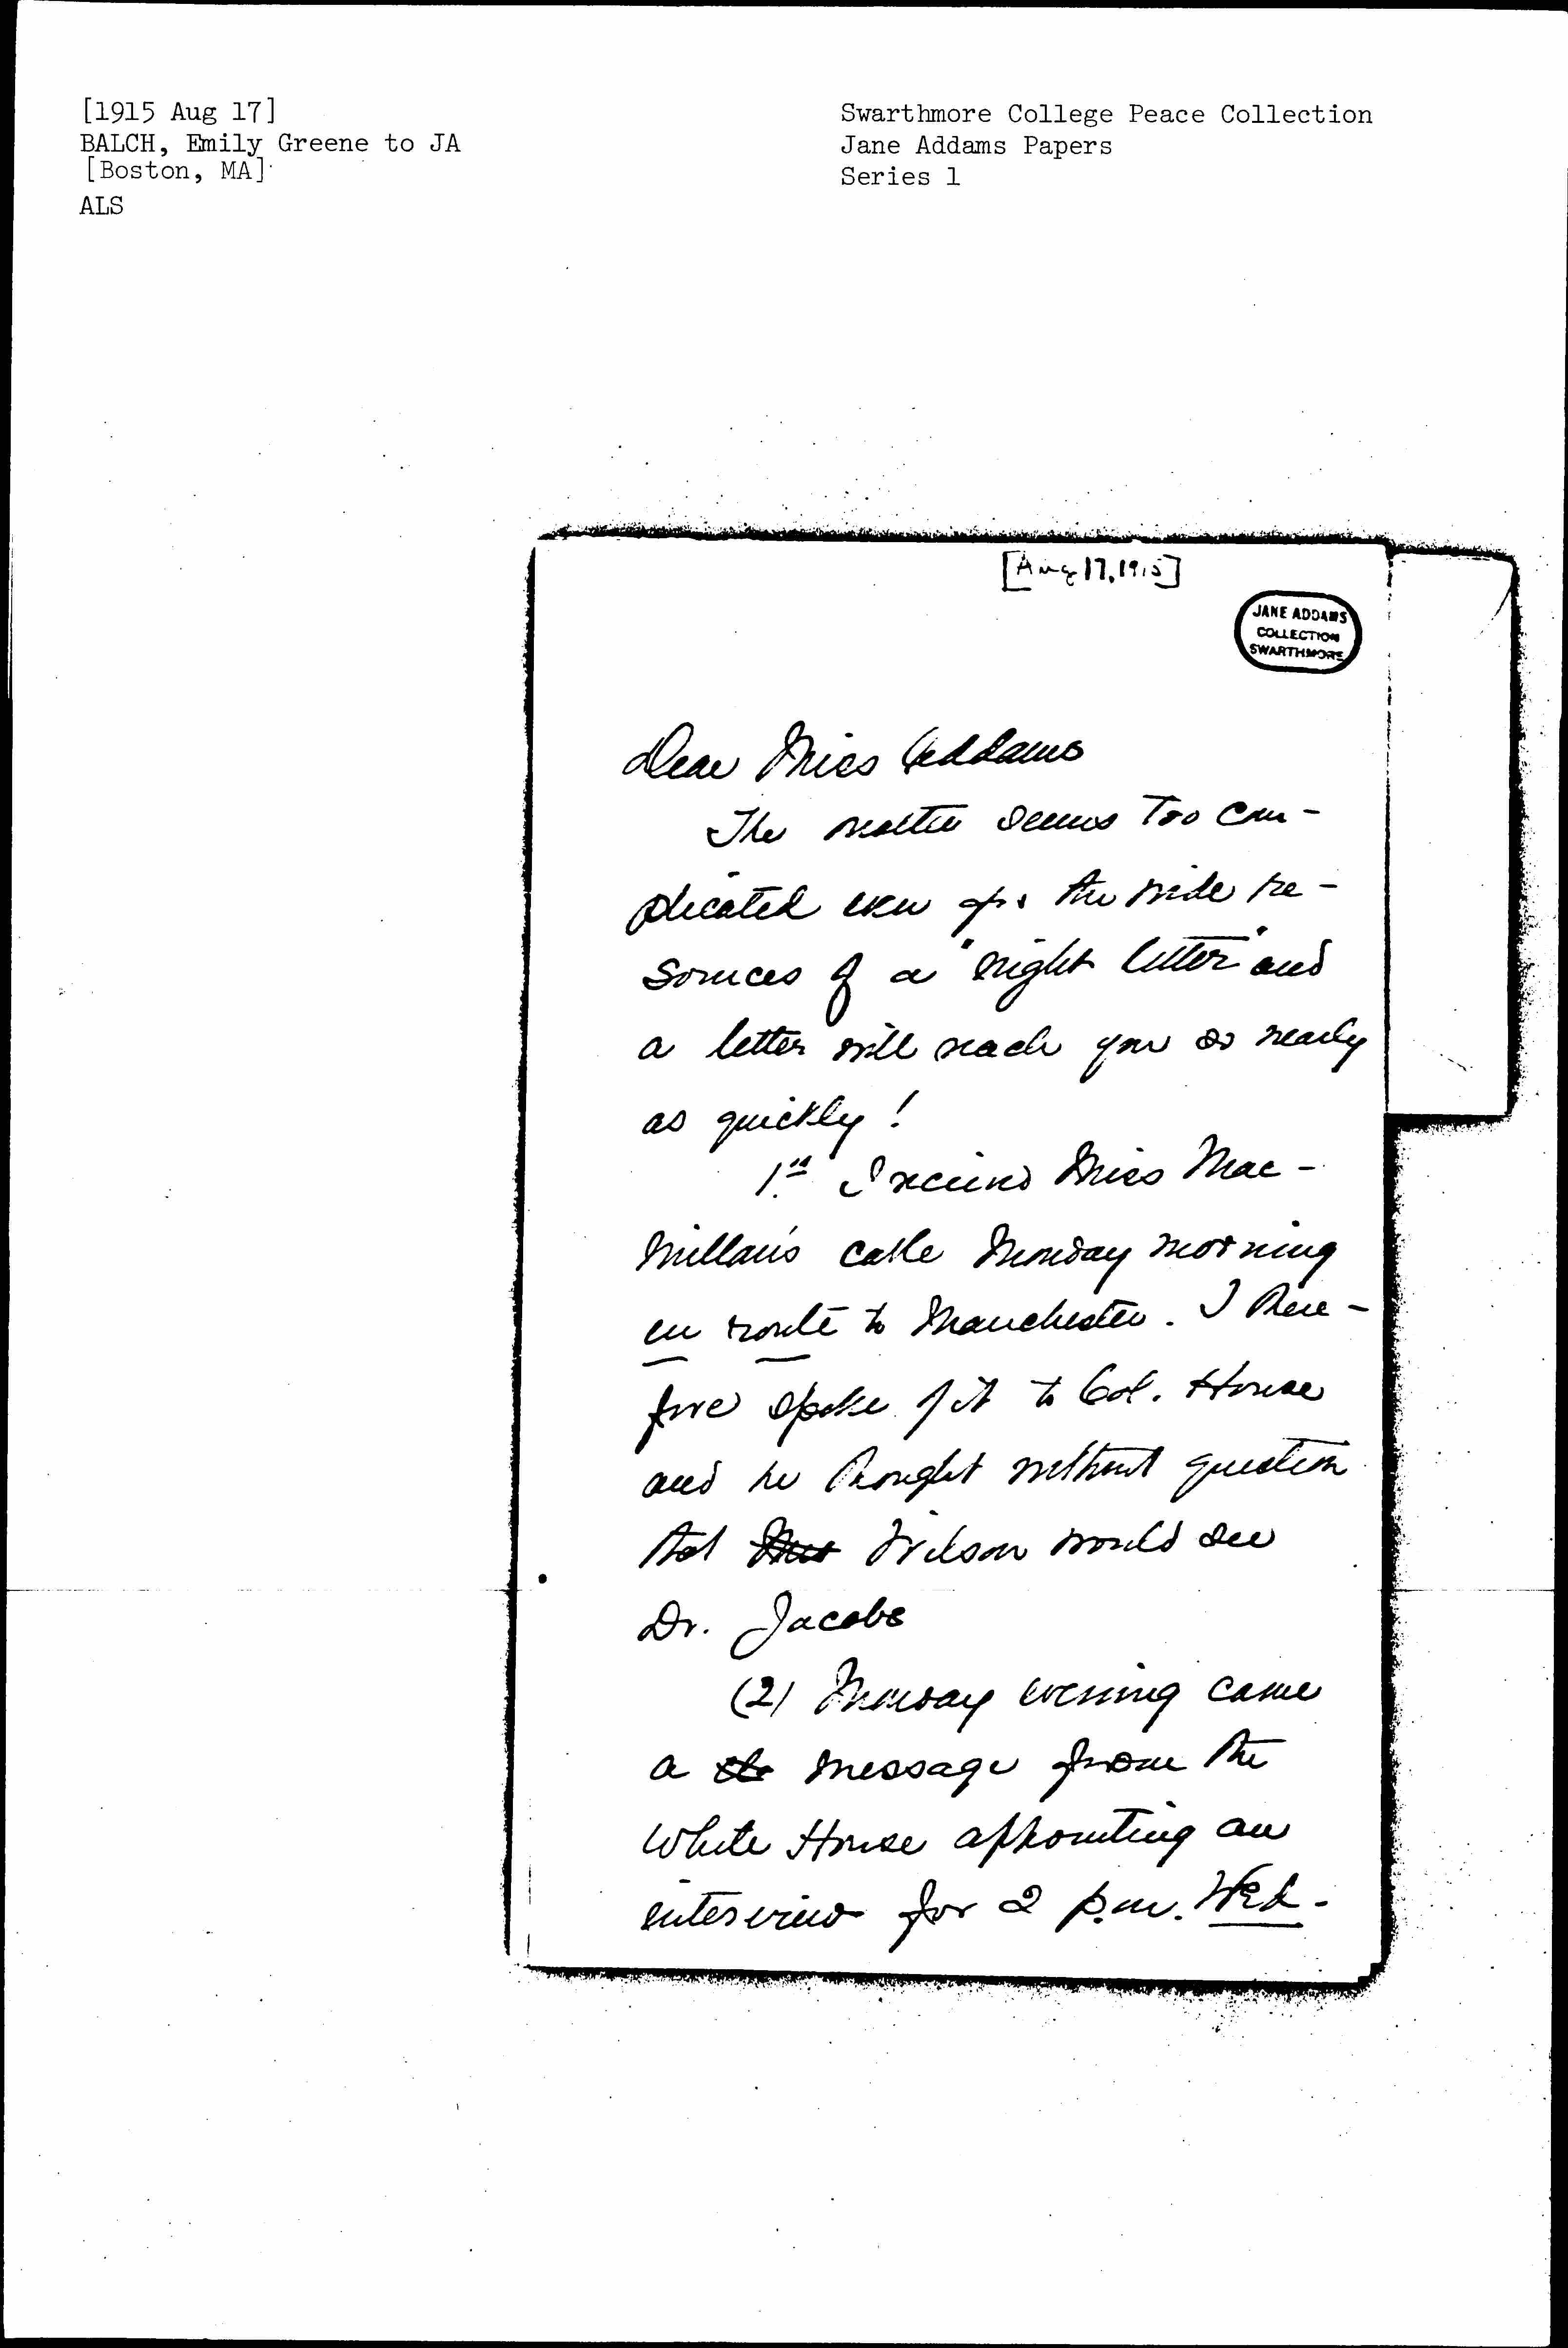 [1915 Aug 17]
BALCH, Emily Greene to JA
[Boston, MA]
ALS
Swarthmore College Peace Collection
Jane Addams Papers
Series 1
[Aug 17, 1915]
JANE ADDAMS
COLLECTION
SWARTHMORE
Dear Miss Addams
The matter seems too com-
plicated even for the wide re-
sources of a "night letter" and
a letter will reach you so nearly
as quickly!
1st I received Miss Mac-
millan's cable Monday morning
en route to Manchester. I there-
fore spoke of it to Col. House
and he thought without question
that Wilson would see
Dr. Jacobs
(2) Monday evening came
a message from the
White House appointing an
interview for 2 p.m. Wed-